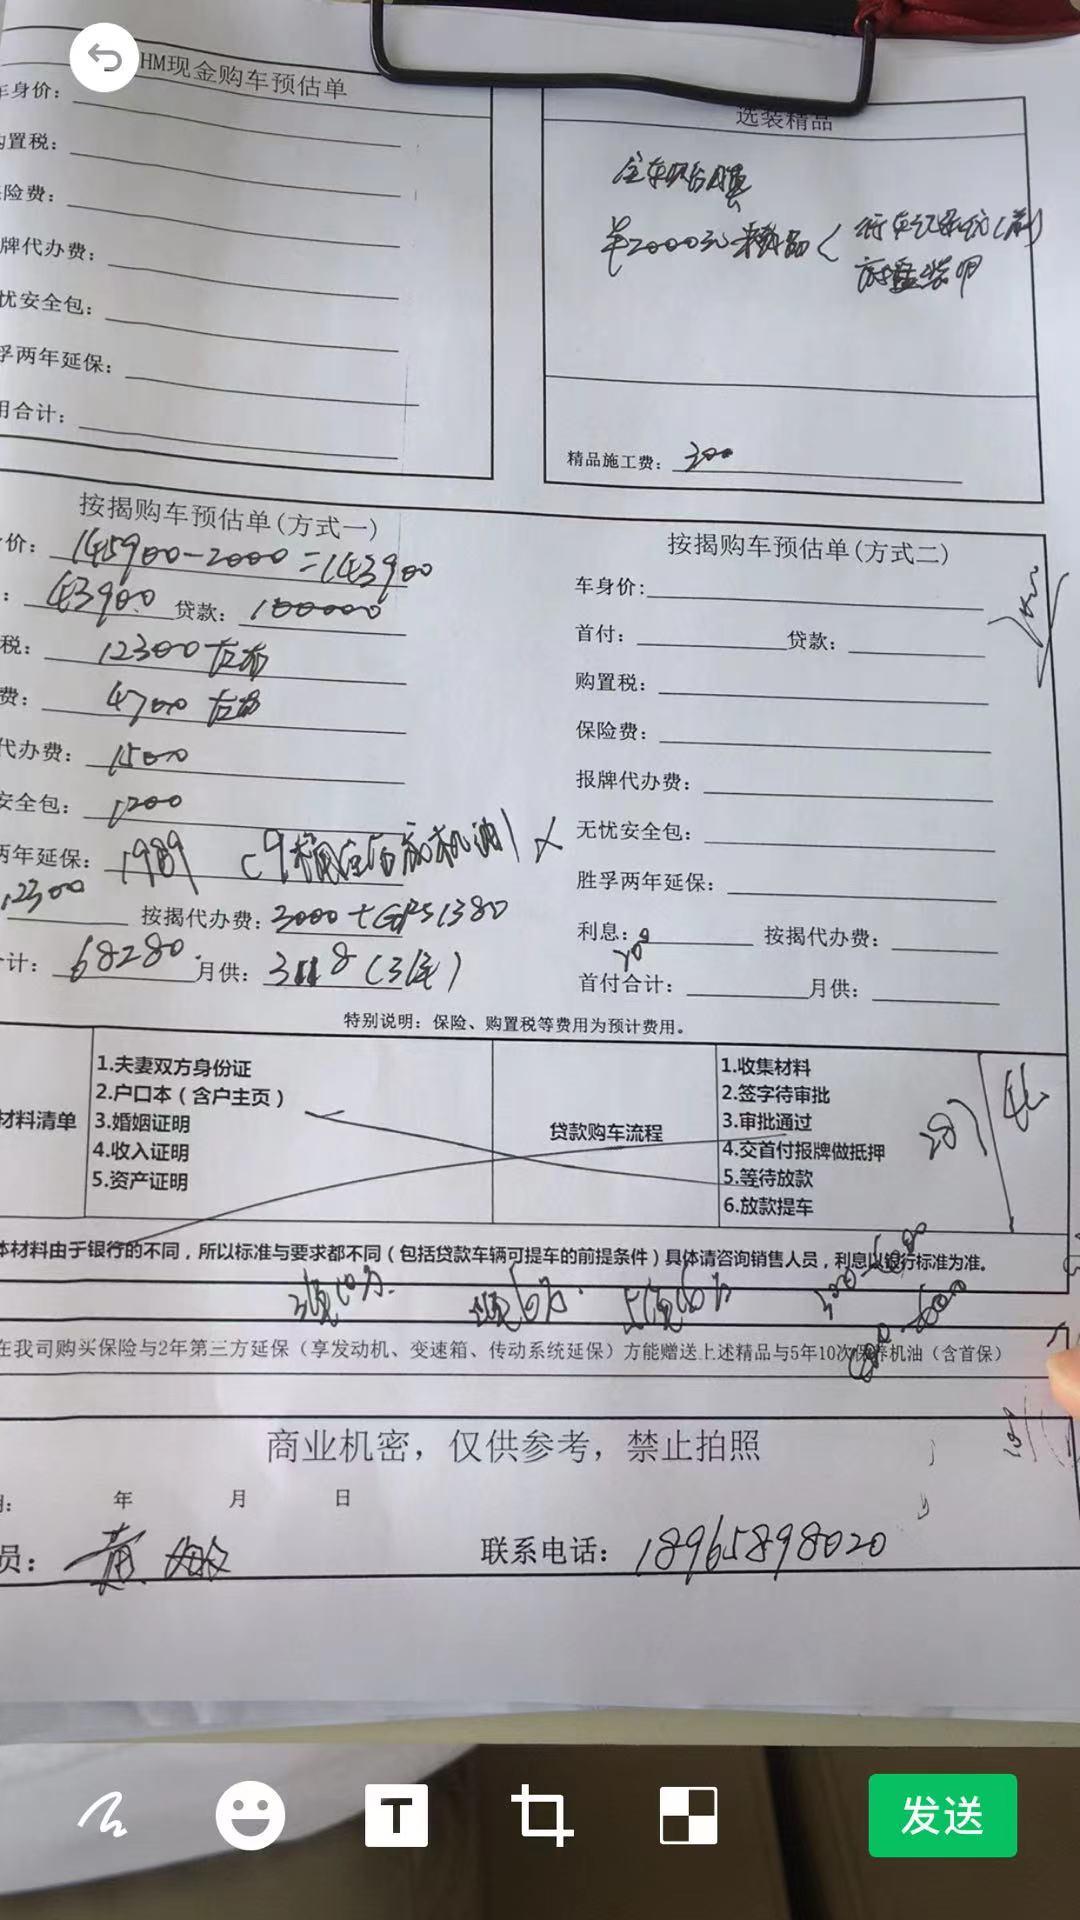 HM现金购车预估单
车身价:
购置税:
险费:
牌代办费:
忧安全包:
孚两年延保:
用合计:
选装精品
全车
¥2000元精品<行车记录仪(前)
底盘装甲
精品施工费: 300
按揭购车预估单(方式一)
价: 145900-2000=143900
: 43900 贷款: 100000
税: 12300左右
费: 4700左右
代办费: 1500
安全包: 1200
两年延保: 1989
12300 按揭代办费: 3000+GPS1380
计: 68280. 月供: 3118(3年)
按揭购车预估单(方式二)
车身价:
首付: 贷款:
购置税:
保险费:
报牌代办费:
无忧安全包:
胜孚两年延保:
利息: 按揭代办费:
首付合计: 月供:
特别说明: 保险、购置税等费用为预计费用。
材料清单
1.夫妻双方身份证
2.户口本(含户主页)
3.婚姻证明
4.收入证明
5.资产证明
贷款购车流程
1.收集材料
2.签字待审批
3.审批通过
4.交首付报牌做抵押
5.等待放款
6.放款提车
体材料由于银行的不同,所以标准与要求都不同(包括贷款车辆可提车的前提条件)具体请咨询销售人员,利息以银行标准为准。
在我司购买保险与2年第三方延保(享发动机、变速箱、传动系统延保)方能赠送上述精品与5年10次保养机油(含首保)
商业机密,仅供参考,禁止拍照
年 月 日
员: 黄 联系电话: 18965898020
T
发送